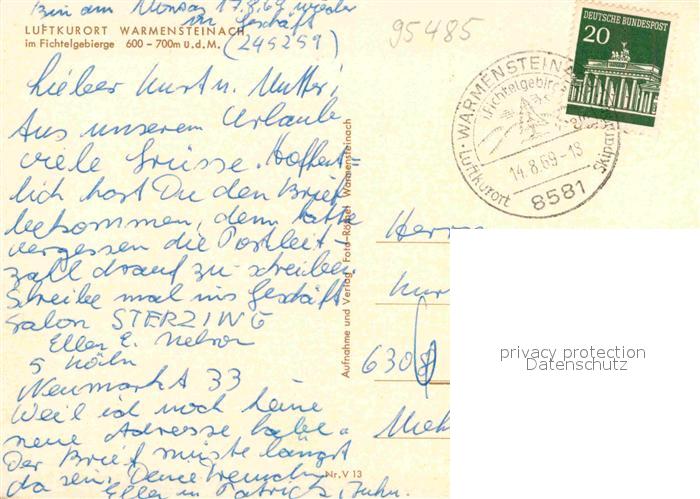 Bin am Montag 17.8.69 wieder
im Geschäft
(245259)
LUFTKURORT WARMENSTEINACH
im Fichtelgebirge 600 – 700m ü.d.M.
95485
Lieber Kurt u. Mutter!
Aus unserem Urlaub
viele Grüsse. Hoffent=
lich hast Du den Brief
bekommen, denn hatte
vergessen die Postleit-
zahl drauf zu schreiben
Schreibe mal ins Geschäft
Salon STERZING
Ellen E. Nelson
5 Köln
Neumarkt 33
Weil ich noch keine
neue Adresse habe.
Der Brief müsste längst
da sein. Deine
Ellen u. Patrick
Nr. V 13
Aufnahme und Verlag Foto-Rössel Warmensteinach
DEUTSCHE BUNDESPOST
20
WARMENSTEINACH
Fichtelgebirge
14.8.69-18
Luftkurort
Skiparadies
8581
Herrn
Kurt
6308
privacy protection
Datenschutz